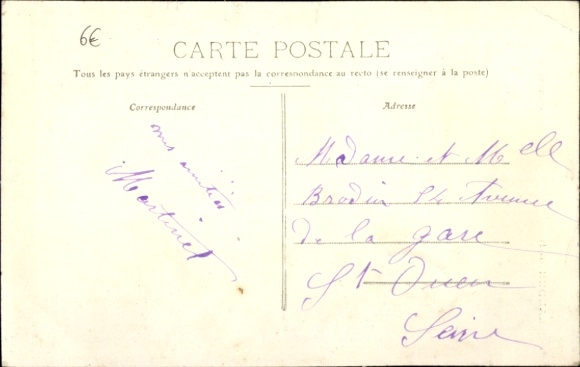 6€
CARTE POSTALE
Tous les pays étrangers n'acceptent pas la correspondance au recto (se renseigner à la poste)
Correspondance
Adresse
mes amitiés
Martinet
Madame et Melle
Brodin 14 Avenue
de la gare
St Ouen
Seine